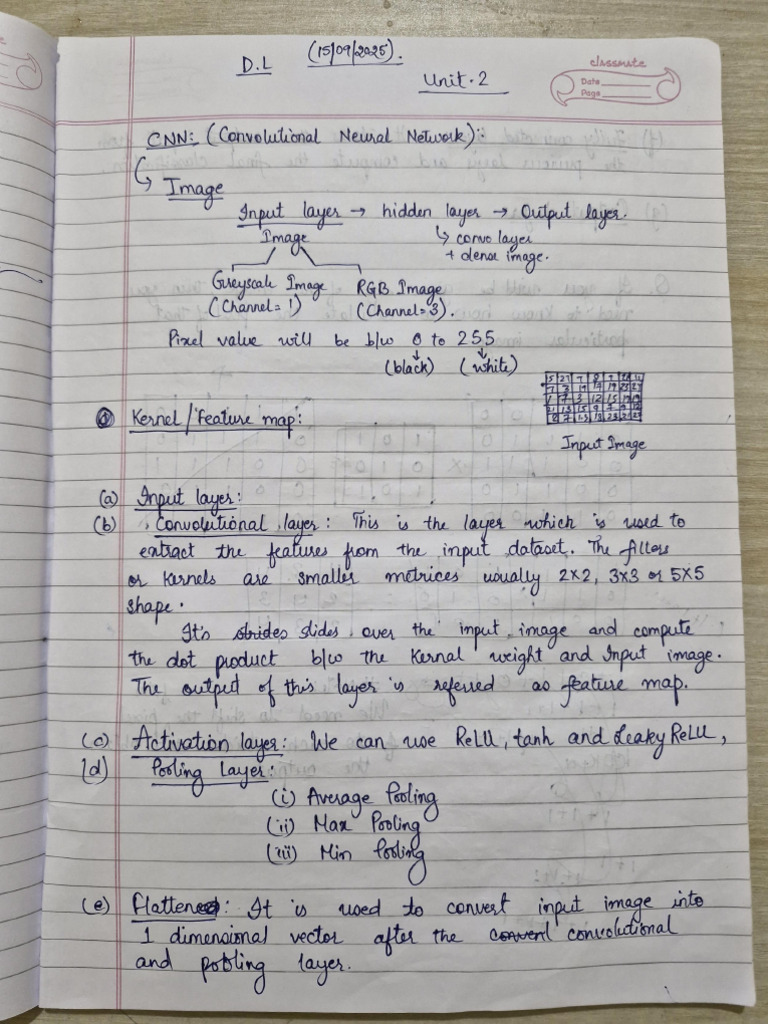 D.L (15/09/2025).
classmate
Date
Page
Unit - 2
CNN: (Convolutional Neural Network):-
Image
Input layer → hidden layer → Output layer.
Image
↳ convo layer
+ dense image.
Greyscale Image RGB Image
(Channel = 1) (Channel = 3).
Pixel value will be b/w 0 to 255
(black) (white)
Kernel / feature map:
Input Image
(a) Input layer:
(b) Convolutional layer: This is the layer which is used to
extract the features from the input dataset. The filters
or kernels are smaller metrices usually 2x2, 3x3 or 5x5
shape.
It's slides over the input image and compute
the dot product b/w the Kernal weight and Input image.
The output of this layer is referred as feature map.
(c) Activation layer: We can use ReLU, tanh and Leaky ReLU,
(d) Pooling Layer:
(i) Average Pooling
(ii) Max Pooling
(iii) Min Pooling
(e) Flatten: It is used to convert input image into
1 dimensional vector after the convolutional
and pooling layer.